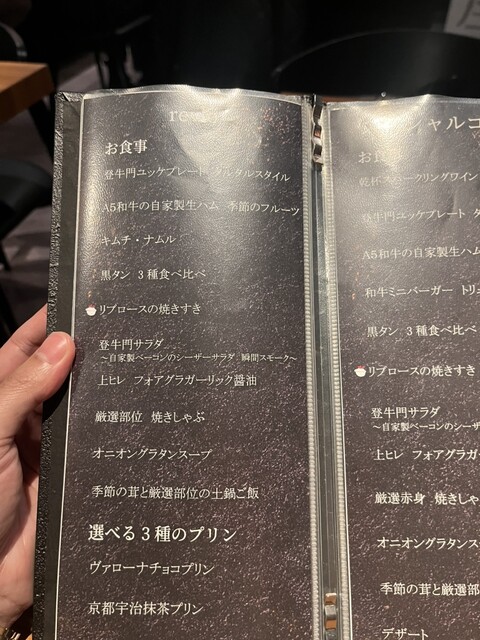 お食事
登牛門ユッケプレート タルタルスタイル
A5和牛の自家製生ハム 季節のフルーツ
キムチ・ナムル
黒タン 3種食べ比べ
リブロースの焼きすき
登牛門サラダ
～自家製ベーコンのシーザーサラダ 瞬間スモーク～
上ヒレ フォアグラガーリック醤油
厳選部位 焼きしゃぶ
オニオングラタンスープ
季節の茸と厳選部位の土鍋ご飯
選べる3種のプリン
ヴァローナチョコプリン
京都宇治抹茶プリン
シャルコ
お食
乾杯スパークリングワイン
登牛門ユッケプレート タ
A5和牛の自家製生ハム
和牛ミニバーガー トリュ
黒タン 3種食べ比べ
リブロースの焼きすき
登牛門サラダ
～自家製ベーコンのシーザー
上ヒレ フォアグラガー
厳選赤身 焼きしゃ
オニオングラタンス
季節の茸と厳選部
デザート